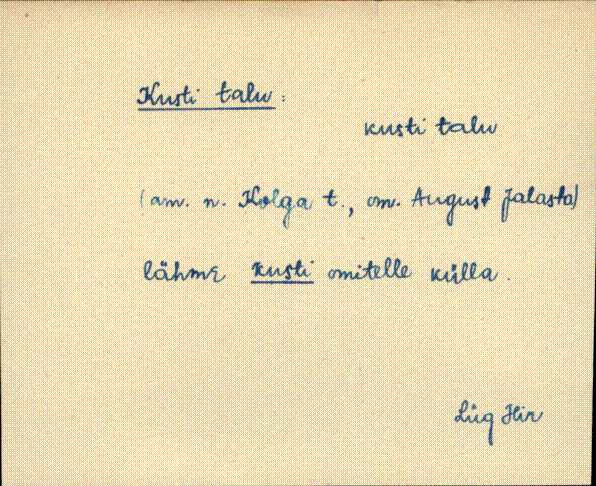 Kusti talu:
kusti talu
(am. n. Kolga t., om. August Jalasto)
lähme kusti omitelle külla.
Lüg Hir